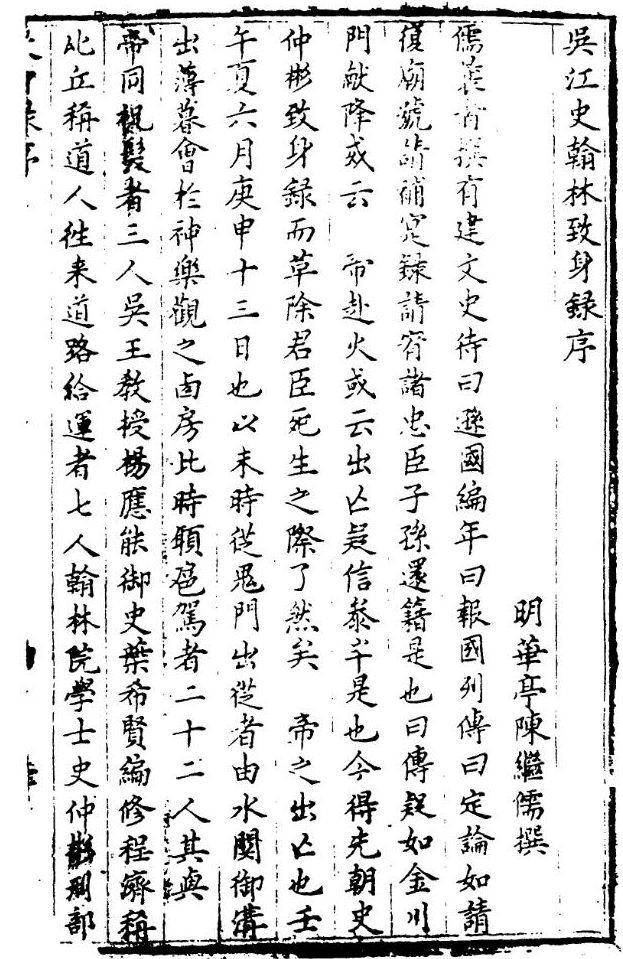 吳江史翰林致身錄序
明華亭陳繼儒撰
儒嘗撰有建文史待曰遜國編年曰報國列傳曰定論如請
復廟號請補定錄請宥諸忠臣子孫還籍是也曰傳疑如金川
門獻降或云 帝赴火或云出亡疑信參半是也今得先朝史
仲彬致身錄而革除君臣死生之際了然矣 帝之出亡也壬
午夏六月庚申十三日也以未時從鬼門出從者由水關御溝
出薄暮會於神樂觀之西房比時願扈駕者二十二人其與
帝同祝髮者三人吳王教授楊應能御史葉希賢編修程濟稱
比丘稱道人往來道路給運者七人翰林院學士史仲彬刑部